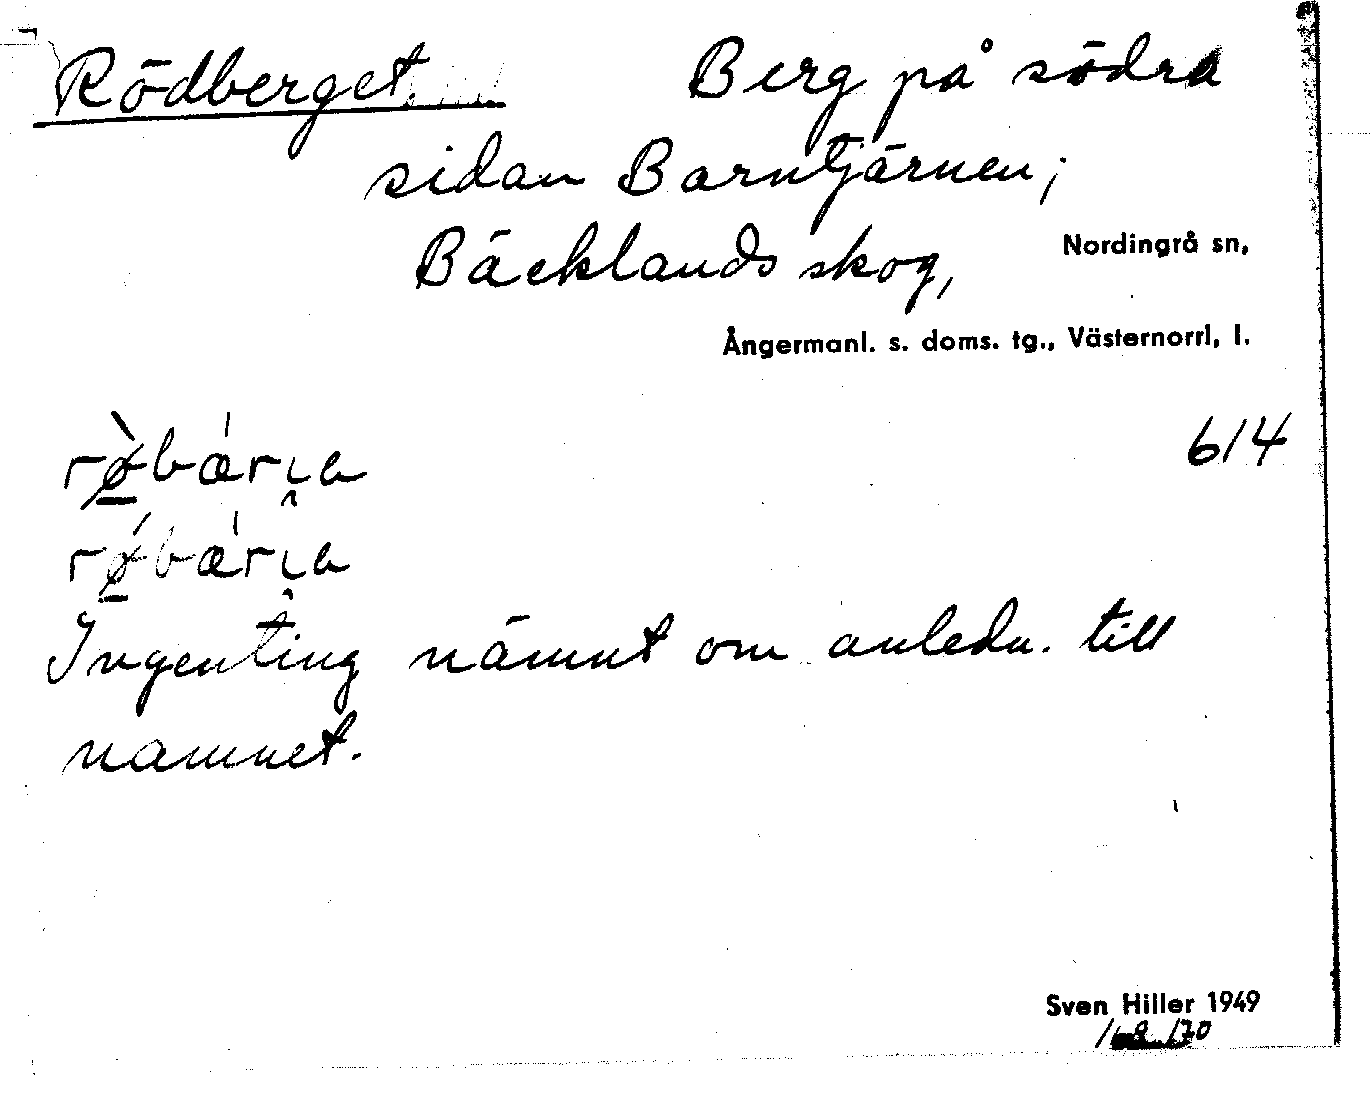 Rödberget. Berg på södra
sidan Barntjärnen;
Bäcklands skog, Nordingrå sn,
Ångermanl. s. doms. tg., Västernorrl, l.
614
Ingenting nämnt om anledn. till
namnet.
Sven Hiller 1949